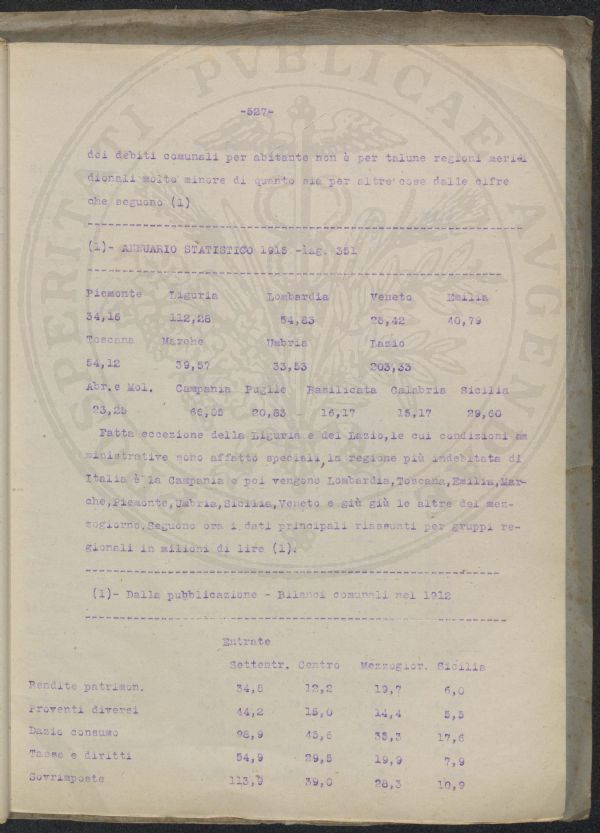 -527-
dei debiti comunali per abitante non è per talune regioni meri-
dionali molto minore di quanto sia per altre cose dalle cifre
che seguono (1)
(1)- ANNUARIO STATISTICO 1915 -Pag. 351
Piemonte Liguria Lombardia Veneto Emilia
34,16 112,28 54,83 25,42 40,79
Toscana Marche Umbria Lazio
54,12 39,57 33,53 203,33
Abr.e Mol. Campania Puglie Basilicata Calabria Sicilia
23,25 66,05 20,83 16,17 15,17 29,60
Fatta eccezione della Liguria e del Lazio,le cui condizioni am
ministrative sono affatto speciali,la regione più indebitata di
Italia è la Campania e poi vengono Lombardia,Toscana,Emilia,Mar-
che,Piemonte,Umbria,Sicilia,Veneto e giù giù le altre del mez-
zogiorno.Seguono ora i dati principali riassunti per gruppi re-
gionali in milioni di lire (1).
(1)- Dalla pubblicazione - Bilanci comunali nel 1912
Entrate
Settentr. Centro Mezzogior. Sicilia
Rendite patrimon. 34,8 12,2 19,7 6,0
Proventi diversi 44,2 15,0 14,4 5,5
Dazio consumo 98,9 45,6 35,3 17,6
Tasse e diritti 54,9 29,5 19,9 7,9
Sovrimposte 113,9 39,0 28,3 10,9